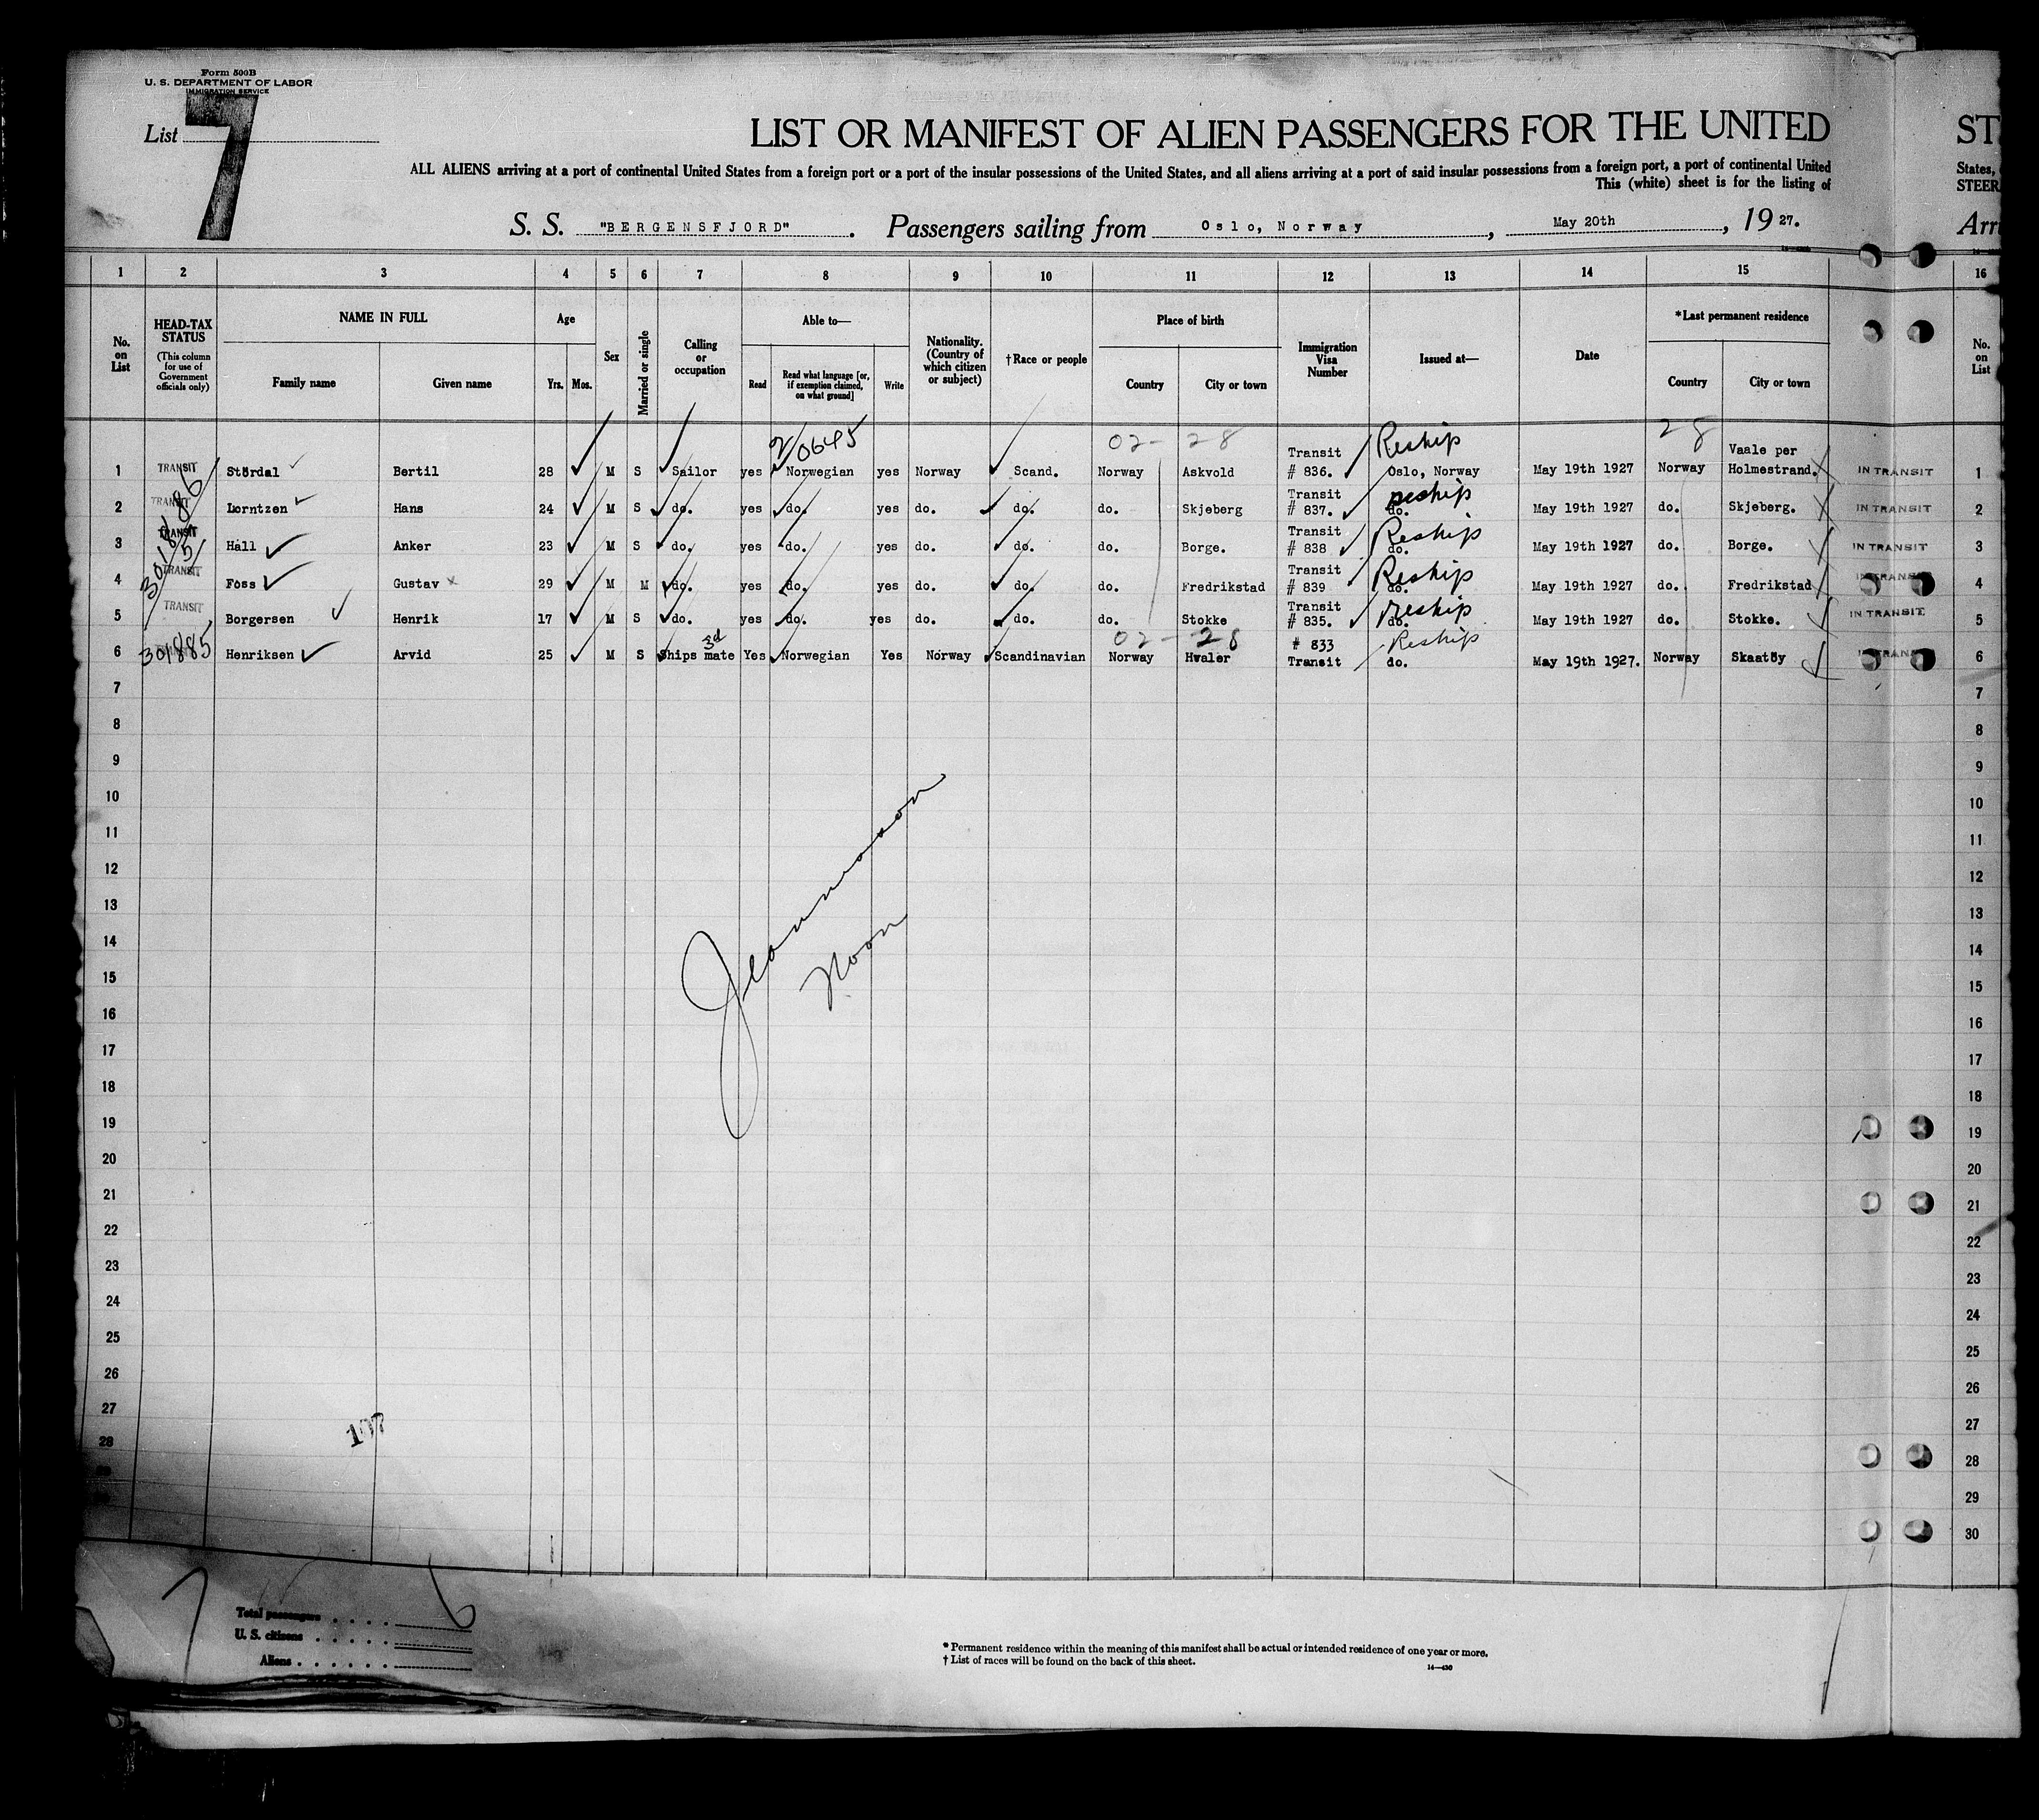 Form 500B
U. S. DEPARTMENT OF LABOR
IMMIGRATION SERVICE
List 7
LIST OR MANIFEST OF ALIEN PASSENGERS FOR THE UNITED
ST
ALL ALIENS arriving at a port of continental United States from a foreign port or a port of the insular possessions of the United States, and all aliens arriving at a port of said insular possessions from a foreign port, a port of continental United
States,
This (white) sheet is for the listing of
STEER
S. S. "BERGENSFJORD". Passengers sailing from Oslo, Norway, May 20th, 1927.
Arri
1 2 3 4 5 6 7 8 9 10 11 12 13 14 15 16
No. on List
HEAD-TAX STATUS
(This column for use of Government officials only)
NAME IN FULL
Family name Given name
Age
Yrs. Mos.
Sex
Married or single
Calling or occupation
Able to—
Read
Read what language [or, if exemption claimed, on what ground]
Write
Nationality. (Country of which citizen or subject)
†Race or people
Place of birth
Country City or town
Immigration Visa Number
Issued at—
Date
*Last permanent residence
Country City or town
No. on List
2/0645 02- 28 Reship 28
1 TRANSIT Stördal Bertil 28 M S Sailor yes Norwegian yes Norway Scand. Norway Askvold Transit # 836. Oslo, Norway May 19th 1927 Norway Vaale per Holmestrand. IN TRANSIT 1
2 TRANSIT Lorntzen Hans 24 M S do. yes do. yes do. do. do. Skjeberg Transit # 837. Reship do. May 19th 1927 do. Skjeberg. IN TRANSIT 2
3 TRANSIT Hall Anker 23 M S do. yes do. yes do. do. do. Borge. Transit # 838 Reship do. May 19th 1927 do. Borge. IN TRANSIT 3
4 TRANSIT Foss Gustav x 29 M M do. yes do. yes do. do. do. Fredrikstad Transit # 839 Reship do. May 19th 1927 do. Fredrikstad IN TRANSIT 4
5 TRANSIT Borgersen Henrik 17 M S do. yes do. yes do. do. do. Stokke Transit # 835. Reship do. May 19th 1927 do. Stokke. IN TRANSIT 5
3d 02- 28
6 301885 Henriksen Arvid 25 M S Ships mate Yes Norwegian Yes Norway Scandinavian Norway Hvaler # 833 Transit Reship do. May 19th 1927. Norway Skaatöy IN TRANSIT 6
7 7
8 8
9 9
10 10
11 11
12 12
13 13
14 14
15 15
16 16
17 17
18 18
19 19
20 20
21 21
22 22
23 23
24 24
25 25
26 26
27 27
28 28
29
30
Noon
107
7
Total passengers 6
U. S. citizens
Aliens
* Permanent residence within the meaning of this manifest shall be actual or intended residence of one year or more.
† List of races will be found on the back of this sheet.
14—430